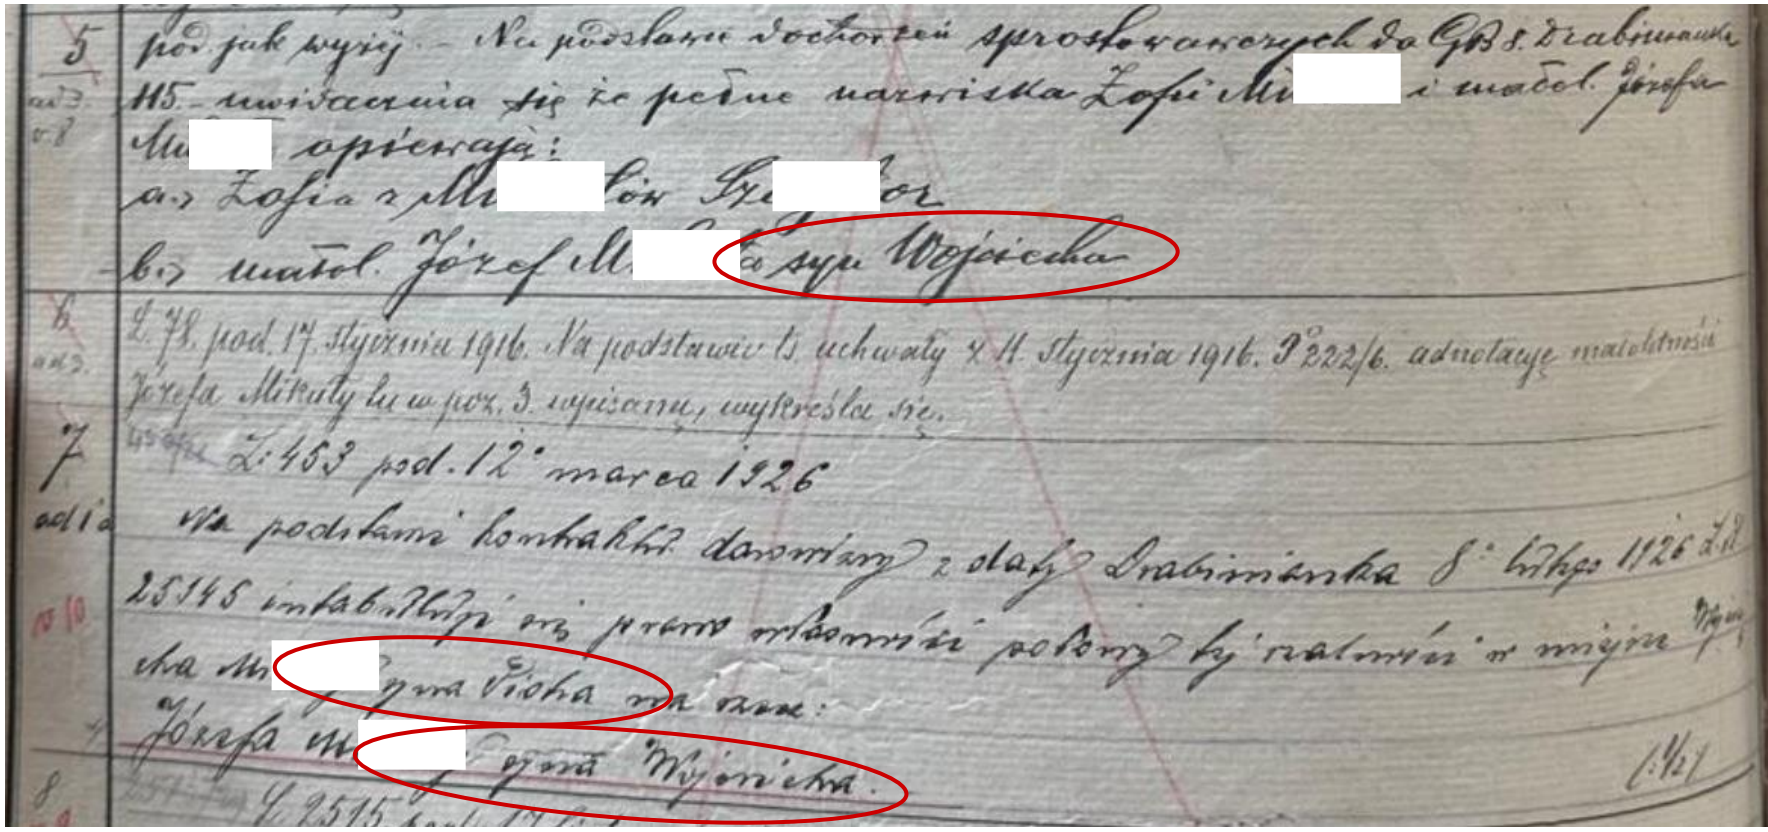 5 pod jak wyżej. - Na podstawie dochodzeń sprostowawczych do GB 8. Drabinianka
ad 3. 115. - uwidacznia się że pełne nazwiska Zofii Mi i małol. Józefa
v. 8 Mi opiewają:
a.) Zofia z Mi łów Grz or
b.) małol. Józef M ła syn Wojciecha
6 L. 78. pod. 17. stycznia 1916. Na podstawie ts. uchwały z 11. stycznia 1916. P 222/6. adnotacyę małoletności
ad 3. Józefa Mikuły tu w poz. 3. wpisaną, wykreśla się.
7 L: 453 pod. 12° marca 1926
ad 1 a Na podstawie kontraktu darowizny z daty Drabinianka 8° lutego 1926
v 10 25945 intabuluje się prawo własności połowy tej realności w miejsce Wojcie
cha Mi syna Piotra na rzecz:
Józefa M syna Wojciecha. (:1/2)
8 L. 2515